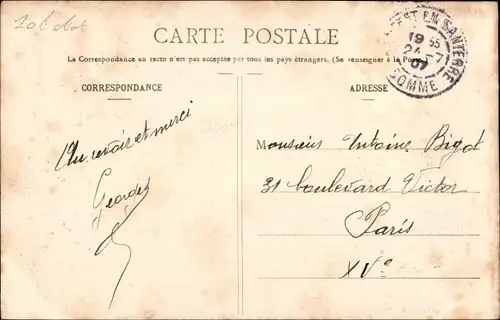 CARTE POSTALE
La Correspondance au recto n'est pas acceptée par tous les pays étrangers. (Se renseigner à la Poste)
CORRESPONDANCE
ADRESSE
EN SANTERRE
19 55
24 - 7
07
SOMME
Au revoir et merci
Georges
Monsieur Antoine Bigot
31 boulevard Victor
Paris
XVe